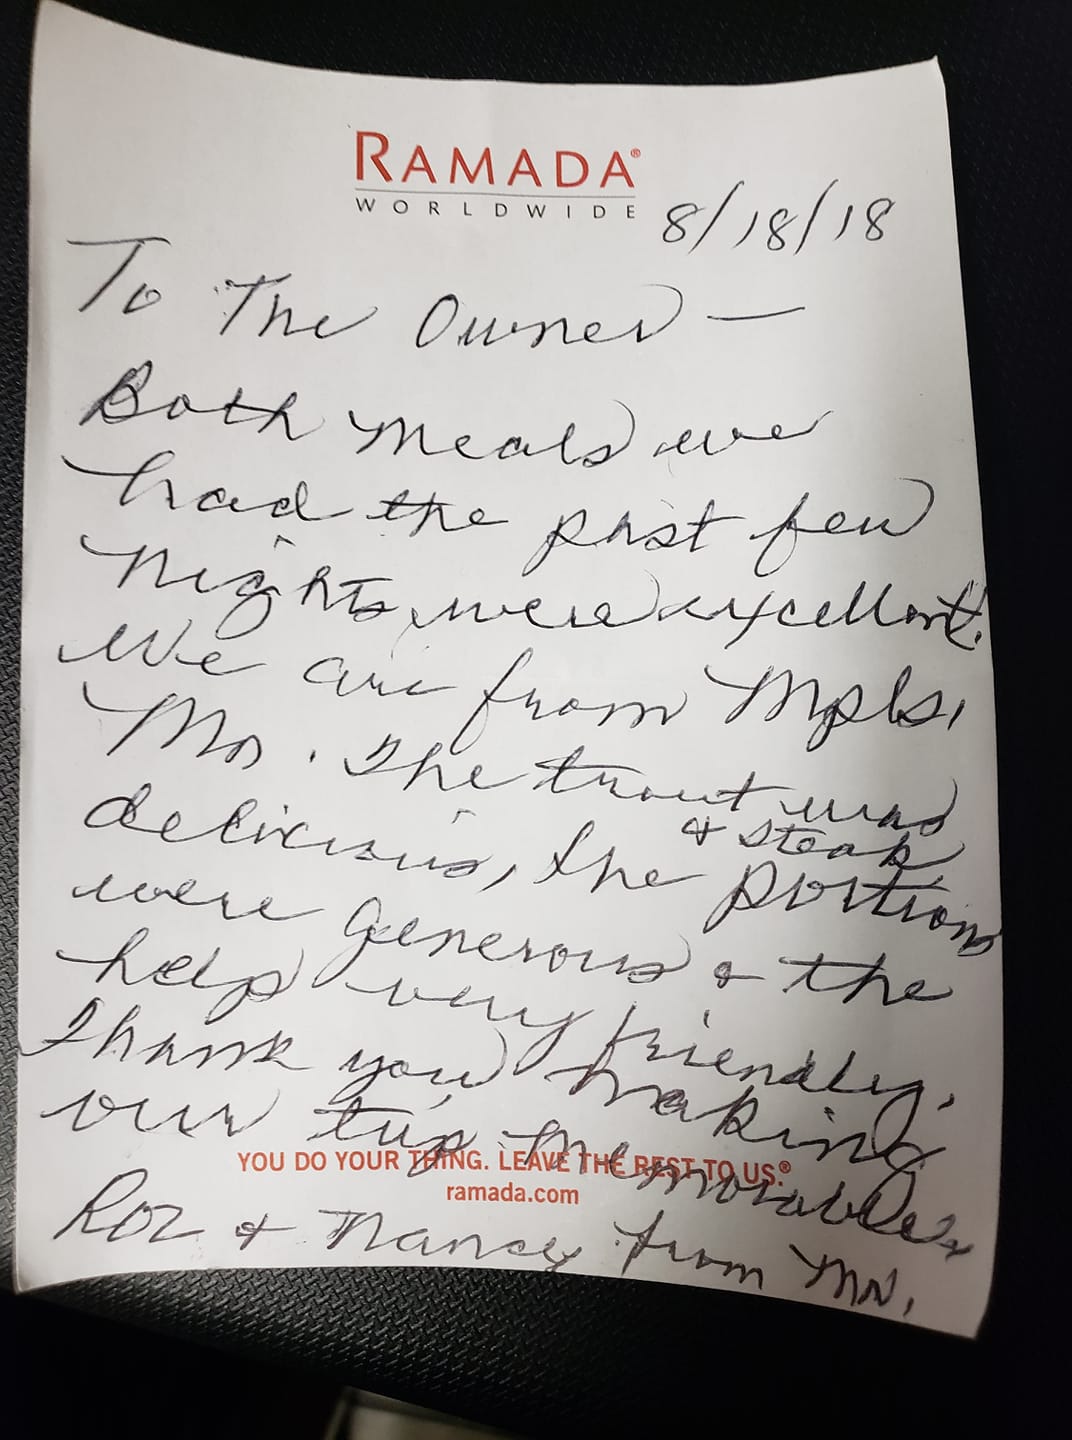 RAMADA®
WORLDWIDE
8/18/18
To The Owner —
Both meals we
had the past few
nights were excellent.
We are from Mpls,
Mn. The trout was
& steak
delicious, the portions
were generous & the
help very friendly.
Thank you making
our trip memorable
YOU DO YOUR THING. LEAVE THE REST TO US.®
ramada.com
Roz & Nancy from MN.